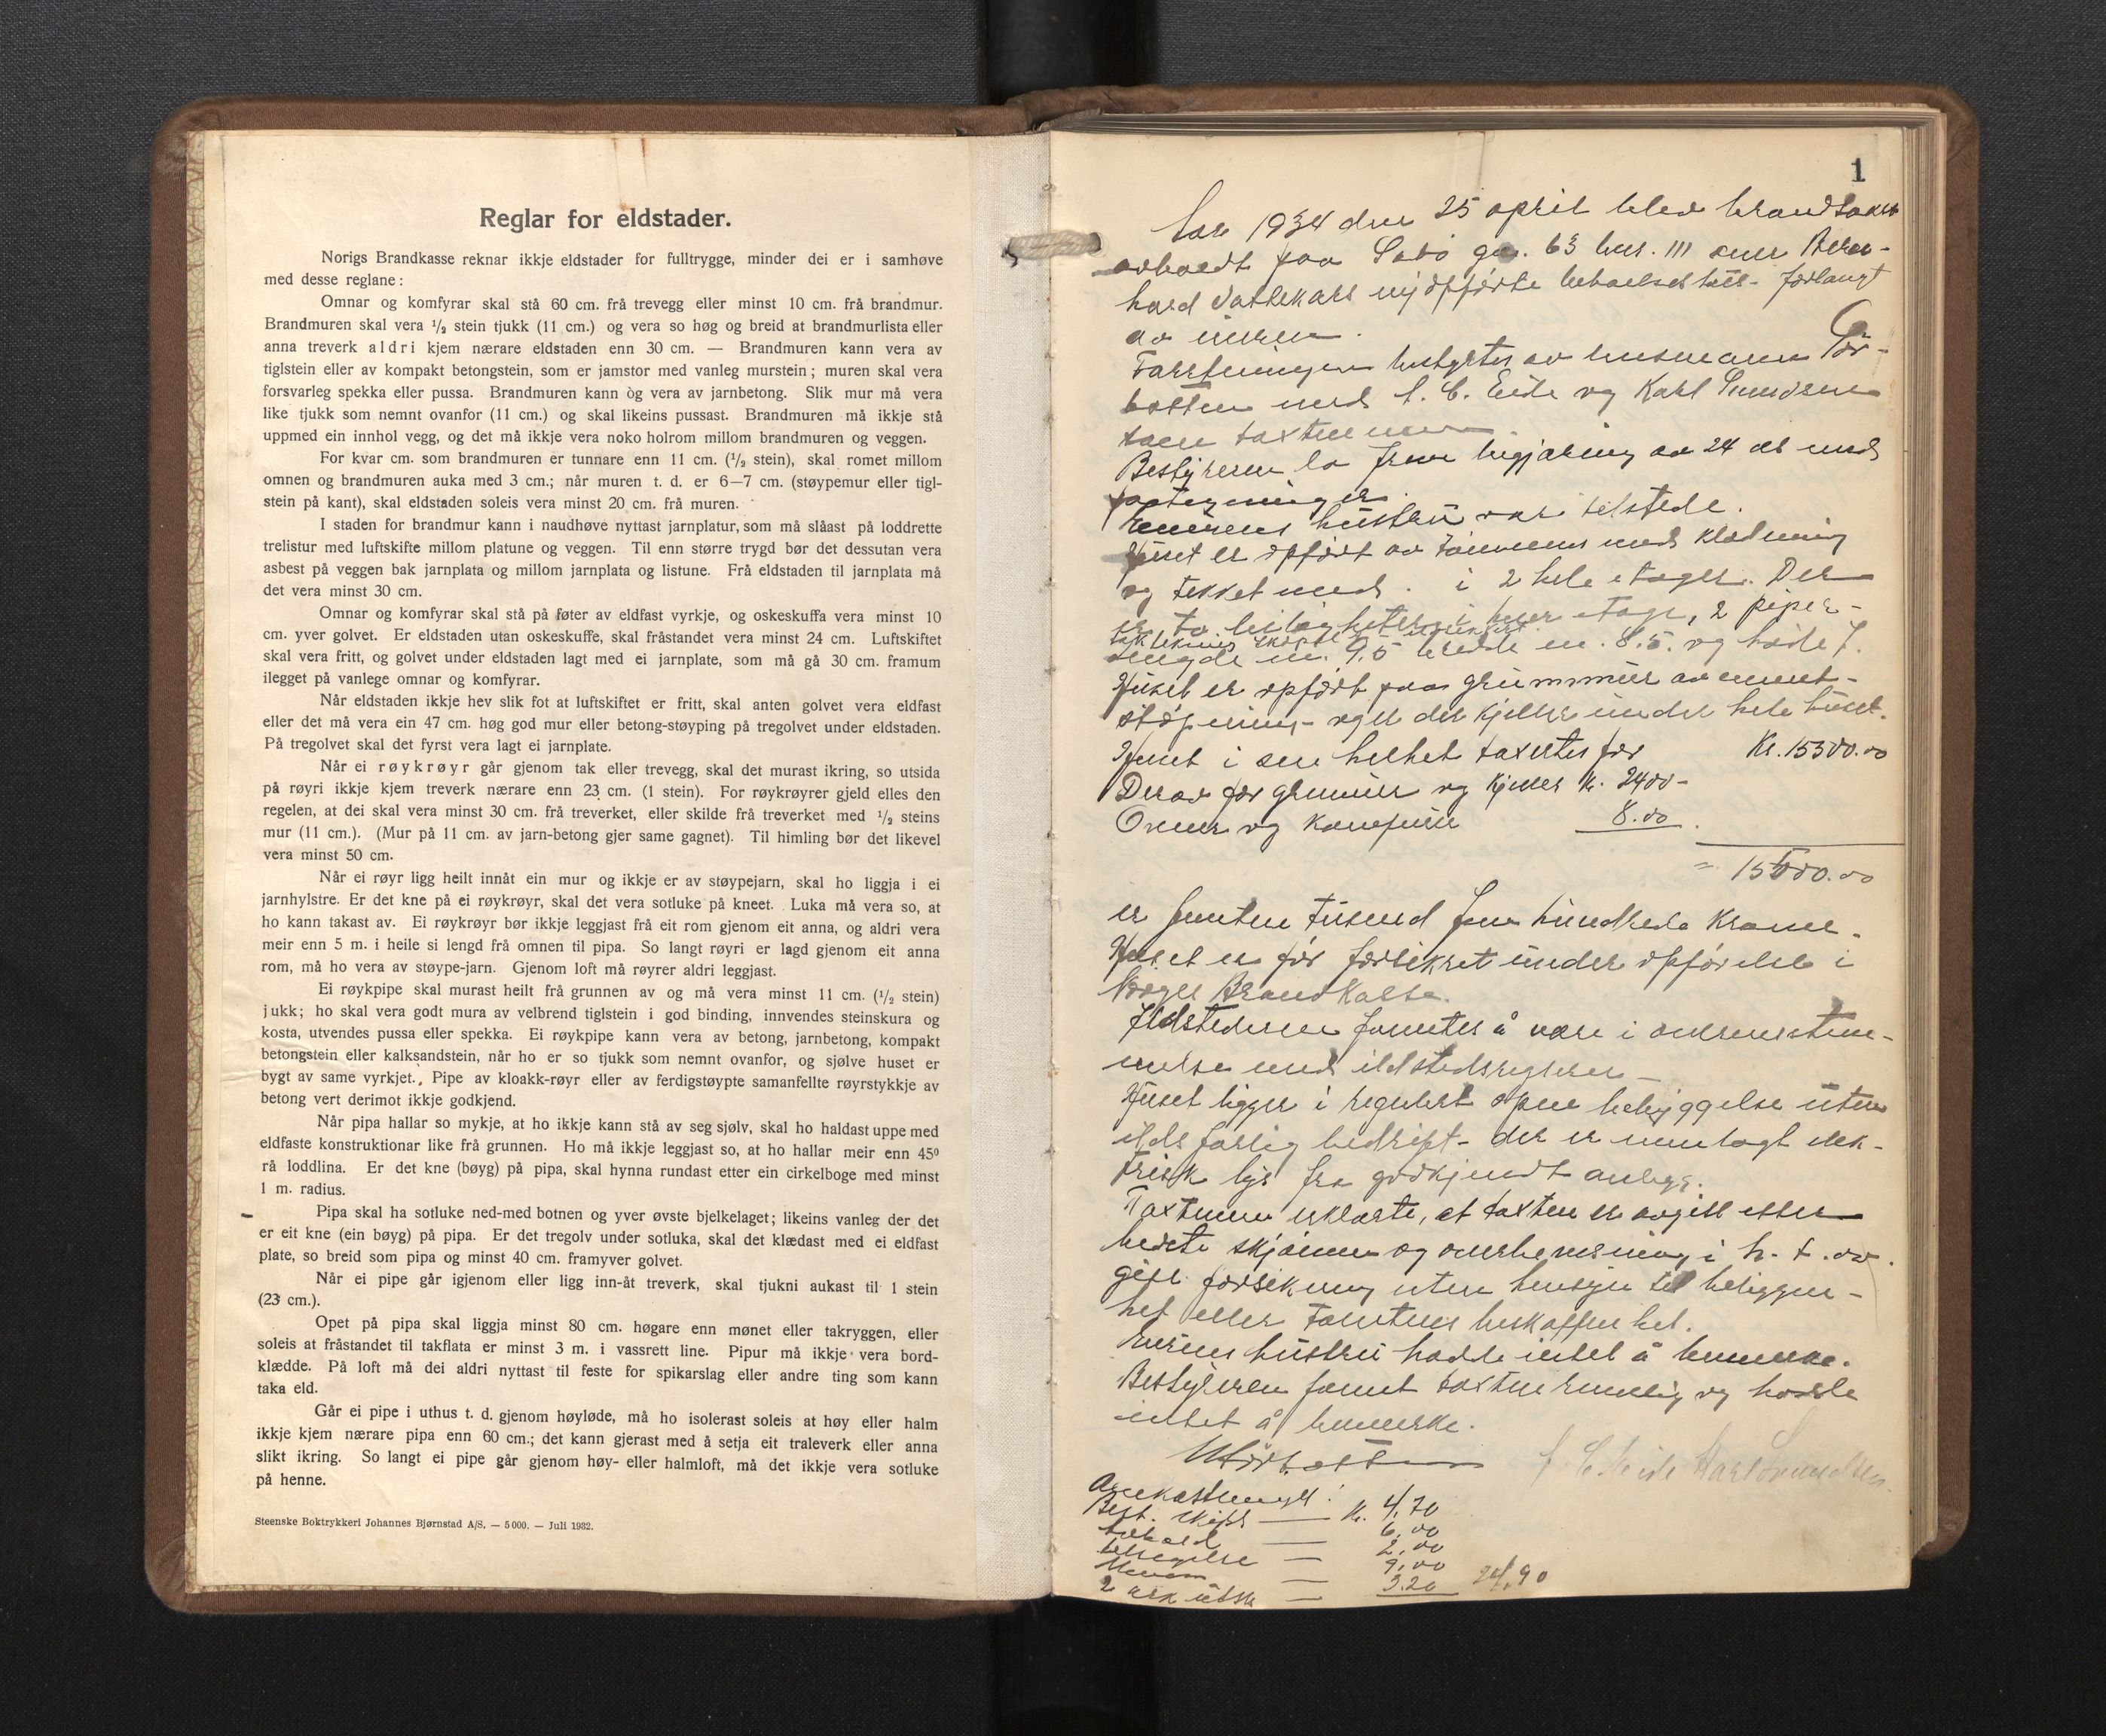 Reglar for eldstader.
Norigs Brandkasse reknar ikkje eldstader for fulltrygge, minder dei er i samhøve
med desse reglane:
Omnar og komfyrar skal stå 60 cm. frå trevegg eller minst 10 cm. frå brandmur.
Brandmuren skal vera 1/2 stein tjukk (11 cm.) og vera so høg og breid at brandmurlista eller
anna treverk aldri kjem nærare eldstaden enn 30 cm. — Brandmuren kann vera av
tiglstein eller av kompakt betongstein, som er jamstor med vanleg murstein; muren skal vera
forsvarleg spekka eller pussa. Brandmuren kann òg vera av jarnbetong. Slik mur må vera
like tjukk som nemnt ovanfor (11 cm.) og skal likeins pussast. Brandmuren må ikkje stå
uppmed ein innhol vegg, og det må ikkje vera noko holrom millom brandmuren og veggen.
For kvar cm. som brandmuren er tunnare enn 11 cm. (1/2 stein), skal romet millom
omnen og brandmuren auka med 3 cm.; når muren t. d. er 6—7 cm. (støypemur eller tigl-
stein på kant), skal eldstaden soleis vera minst 20 cm. frå muren.
I staden for brandmur kann i naudhøve nyttast jarnplatur, som må slåast på loddrette
trelistur med luftskifte millom platune og veggen. Til enn større trygd bør det dessutan vera
asbest på veggen bak jarnplata og millom jarnplata og listune. Frå eldstaden til jarnplata må
det vera minst 30 cm.
Omnar og komfyrar skal stå på føter av eldfast vyrkje, og oskeskuffa vera minst 10
cm. yver golvet. Er eldstaden utan oskeskuffe, skal fråstandet vera minst 24 cm. Luftskiftet
skal vera fritt, og golvet under eldstaden lagt med ei jarnplate, som må gå 30 cm. framum
ilegget på vanlege omnar og komfyrar.
Når eldstaden ikkje hev slik fot at luftskiftet er fritt, skal anten golvet vera eldfast
eller det må vera ein 47 cm. høg god mur eller betong-støyping på tregolvet under eldstaden.
På tregolvet skal det fyrst vera lagt ei jarnplate.
Når ei røykrøyr går gjenom tak eller trevegg, skal det murast ikring, so utsida
på røyri ikkje kjem treverk nærare enn 23 cm. (1 stein). For røykrøyrer gjeld elles den
regelen, at dei skal vera minst 30 cm. frå treverket, eller skilde frå treverket med 1/2 steins
mur (11 cm.). (Mur på 11 cm. av jarn-betong gjer same gagnet). Til himling bør det likevel
vera minst 50 cm.
Når ei røyr ligg heilt innåt ein mur og ikkje er av støypejarn, skal ho liggja i ei
jarnhylstre. Er det kne på ei røykrøyr, skal det vera sotluke på kneet. Luka må vera so, at
ho kann takast av. Ei røykrøyr bør ikkje leggjast frå eit rom gjenom eit anna, og aldri vera
meir enn 5 m. i heile si lengd frå omnen til pipa. So langt røyri er lagd gjenom eit anna
rom, må ho vera av støype-jarn. Gjenom loft må røyrer aldri leggjast.
Ei røykpipe skal murast heilt frå grunnen av og må vera minst 11 cm. (1/2 stein)
jukk; ho skal vera godt mura av velbrend tiglstein i god binding, innvendes steinskura og
kosta, utvendes pussa eller spekka. Ei røykpipe kann vera av betong, jarnbetong, kompakt
betongstein eller kalksandstein, når ho er so tjukk som nemnt ovanfor, og sjølve huset er
bygt av same vyrkjet. Pipe av kloakk-røyr eller av ferdigstøypte samanfellte røyrstykkje av
betong vert derimot ikkje godkjend.
Når pipa hallar so mykje, at ho ikkje kann stå av seg sjølv, skal ho haldast uppe med
eldfaste konstruktionar like frå grunnen. Ho må ikkje leggjast so, at ho hallar meir enn 45°
rå loddlina. Er det kne (bøyg) på pipa, skal hynna rundast etter ein cirkelboge med minst
1 m. radius.
Pipa skal ha sotluke ned-med botnen og yver øvste bjelkelaget; likeins vanleg der det
er eit kne (ein bøyg) på pipa. Er det tregolv under sotluka, skal det klædast med ei eldfast
plate, so breid som pipa og minst 40 cm. framyver golvet.
Når ei pipe går igjenom eller ligg inn-åt treverk, skal tjukni aukast til 1 stein
(23 cm.).
Opet på pipa skal liggja minst 80 cm. høgare enn mønet eller takryggen, eller
soleis at fråstandet til takflata er minst 3 m. i vassrett line. Pipur må ikkje vera bord-
klædde. På loft må dei aldri nyttast til feste for spikarslag eller andre ting som kann
taka eld.
Går ei pipe i uthus t. d. gjenom høyløde, må ho isolerast soleis at høy eller halm
ikkje kjem nærare pipa enn 60 cm.; det kann gjerast med å setja eit traleverk eller anna
slikt ikring. So langt ei pipe går gjenom høy- eller halmloft, må det ikkje vera sotluke
på henne.
Steenske Boktrykkeri Johannes Bjørnstad A/S. — 5000. — Juli 1932.
1
Aar 1934 den 25 april blev brandtakst
avholdt paa gn. 63 bnr. 111 over Bern-
hard nyopførte beboelseshus - forlangt
av eieren.
Forretningen bestyrtes av lensmann Hør-
botten med Eide og Karl
som takstmenn.
Bestyreren la frem begjæring av 24 ds med
paategninger.
Eierens hustru var tilstede.
Huset er opført av tømmer med klædning
og tekket med i 2 hele etager. Der
er to leiligheter i hver etage, 2 piper -
længde m. 9.5 bredde m. 8.5. og høide 7.
Huset er opført paa grunnmur av cement-
støpning - og er der kjeller under hele huset.
Huset i sin helhet taxertes for Kr. 15500.00
Derav for grunmur og kjeller kr. 2400 -
Ovner og komfyrer 8.00
= 15500.00
er femten tusend fem hundrede kroner.
Huset er før forsikret under opførelse i
Norges Brandkasse.
Ildstederne fantes å være i overensstem-
melse med ildstedsreglerne -
Huset ligger i regulert open bebyggelse uten
ildsfarlig bedrift - der er innlagt elek-
trisk lys fra godkjendt anlegg.
Taxtmenn erklærte, at taxten er avgitt efter
bedste skjønn og overbevisning i h. t. av
gitt forsikring uten hensyn til beliggen-
het eller tomtens beskaffenhet.
Eierens hustru hadde intet å bemerke.
Bestyreren fannt taxten rimelig og hadde
intet å bemerke.
Hørbotten Eide Karl
Omkostninger:
Best. skyss — kr. 4,70
tilhold — 6,00
— 2,00
Menn — 9,00
2 ark utskr — 3.20 24,90